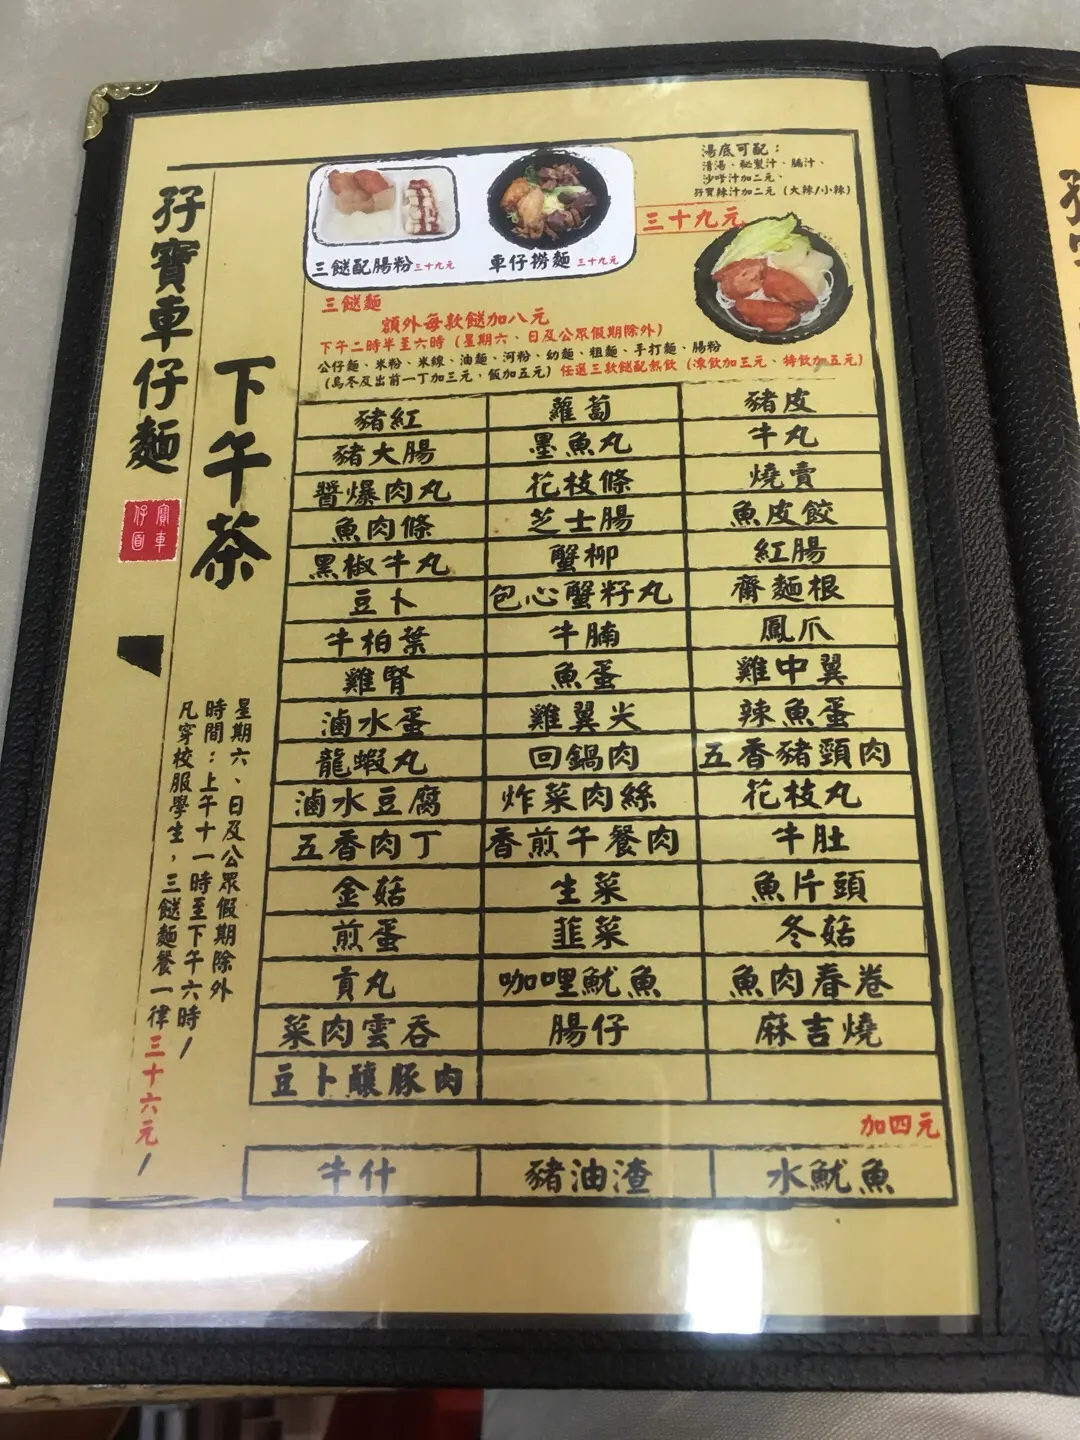 孖寶車仔麵
寶車
仔面
下午茶
湯底可配：
清湯、秘製汁、腩汁、
沙嗲汁加二元、
孖寶辣汁加二元（大辣/小辣）
三十九元
三餸配腸粉三十九元 車仔撈麵三十九元
三餸麵
額外每款餸加八元
下午二時半至六時（星期六、日及公眾假期除外）
公仔麵、米粉、米線、油麵、河粉、幼麵、粗麵、手打麵、腸粉
（烏冬及出前一丁加三元，飯加五元）任選三款餸配熱飲（凍飲加三元、特飲加五元）
豬紅 蘿蔔 豬皮
豬大腸 墨魚丸 牛丸
醬爆肉丸 花枝條 燒賣
魚肉條 芝士腸 魚皮餃
黑椒牛丸 蟹柳 紅腸
豆卜 包心蟹籽丸 齋麵根
牛柏葉 牛腩 鳳爪
雞腎 魚蛋 雞中翼
滷水蛋 雞翼尖 辣魚蛋
龍蝦丸 回鍋肉 五香豬頸肉
滷水豆腐 炸菜肉絲 花枝丸
五香肉丁 香煎午餐肉 牛肚
金菇 生菜 魚片頭
煎蛋 韮菜 冬菇
貢丸 咖哩魷魚 魚肉春卷
菜肉雲吞 腸仔 麻吉燒
豆卜釀豚肉
加四元
牛什 豬油渣 水魷魚
星期六、日及公眾假期除外
時間：上午十一時至下午六時/
凡穿校服學生，三餸麵餐一律三十六元/